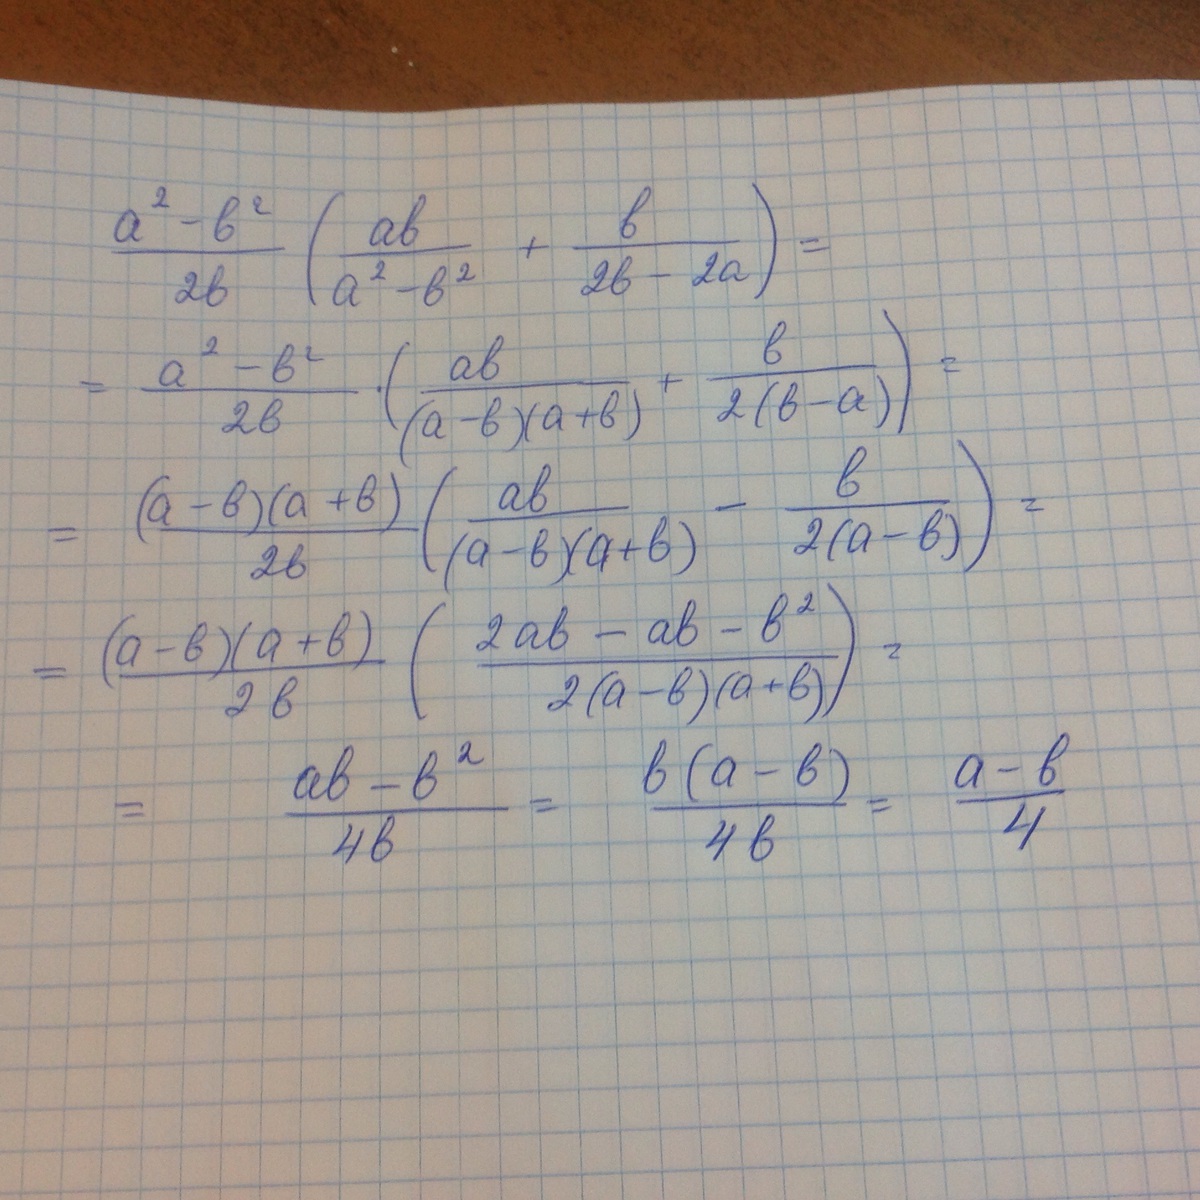 a² - b² / 2b (ab / a² - b² + b / 2b - 2a) =
= a² - b² / 2b · (ab / (a - b)(a + b) + b / 2(b - a)) =
= (a - b)(a + b) / 2b (ab / (a - b)(a + b) - b / 2(a - b)) =
= (a - b)(a + b) / 2b (2ab - ab - b² / 2(a - b)(a + b)) =
= ab - b² / 4b = b(a - b) / 4b = a - b / 4